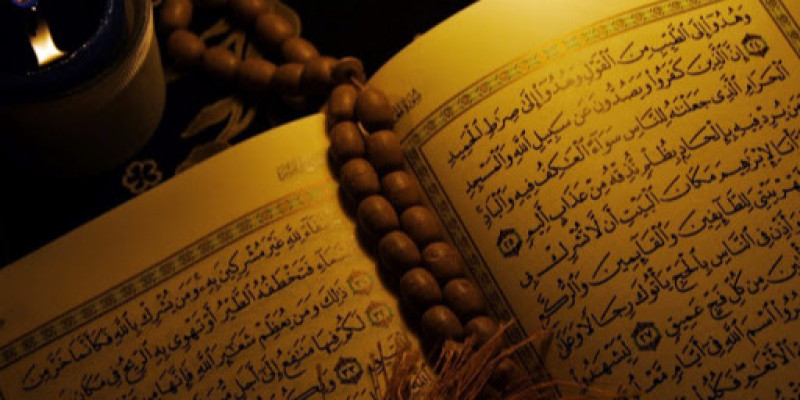 وَهُدُوٓا۟ إِلَى ٱلطَّيِّبِ مِنَ ٱلْقَوْلِ وَهُدُوٓا۟ إِلَىٰ صِرَٰطِ ٱلْحَمِيدِ
٢٤ إِنَّ ٱلَّذِينَ كَفَرُوا۟ وَيَصُدُّونَ عَن سَبِيلِ ٱللَّهِ وَٱلْمَسْجِدِ
ٱلْحَرَامِ ٱلَّذِى جَعَلْنَٰهُ لِلنَّاسِ سَوَآءً ٱلْعَٰكِفُ فِيهِ وَٱلْبَادِ
وَمَن يُرِدْ فِيهِ بِإِلْحَادٍۭ بِظُلْمٍ نُّذِقْهُ مِنْ عَذَابٍ أَلِيمٍ ٢٥
بَوَّأْنَا لِإِبْرَٰهِيمَ مَكَانَ ٱلْبَيْتِ أَن لَّا تُشْرِكْ بِى
بَيْتِىَ لِلطَّآئِفِينَ وَٱلْقَآئِمِينَ وَٱلرُّكَّعِ
وَأَذِّن فِى ٱلنَّاسِ بِٱلْحَجِّ يَأْتُوكَ رِجَالًا وَعَلَىٰ
مِن كُلِّ فَجٍّ عَمِيقٍ ٢٧ لِّيَشْهَدُوا۟
ٱسْمَ ٱللَّهِ فِىٓ أَيَّامٍ
ٱلْأَنْعَٰمِ فَكُلُوا۟
لِلَّهِ غَيْرَ مُشْرِكِينَ بِهِۦ وَمَن يُشْرِكْ بِٱللَّهِ فَكَأَنَّمَا خَرَّ مِنَ
فَتَخْطَفُهُ ٱلطَّيْرُ أَوْ تَهْوِى بِهِ ٱلرِّيحُ فِى مَكَانٍ
ذَٰلِكَ وَمَن يُعَظِّمْ شَعَٰٓئِرَ ٱللَّهِ فَإِنَّهَا
لَكُمْ فِيهَا مَنَٰفِعُ إِلَىٰٓ أَجَلٍ